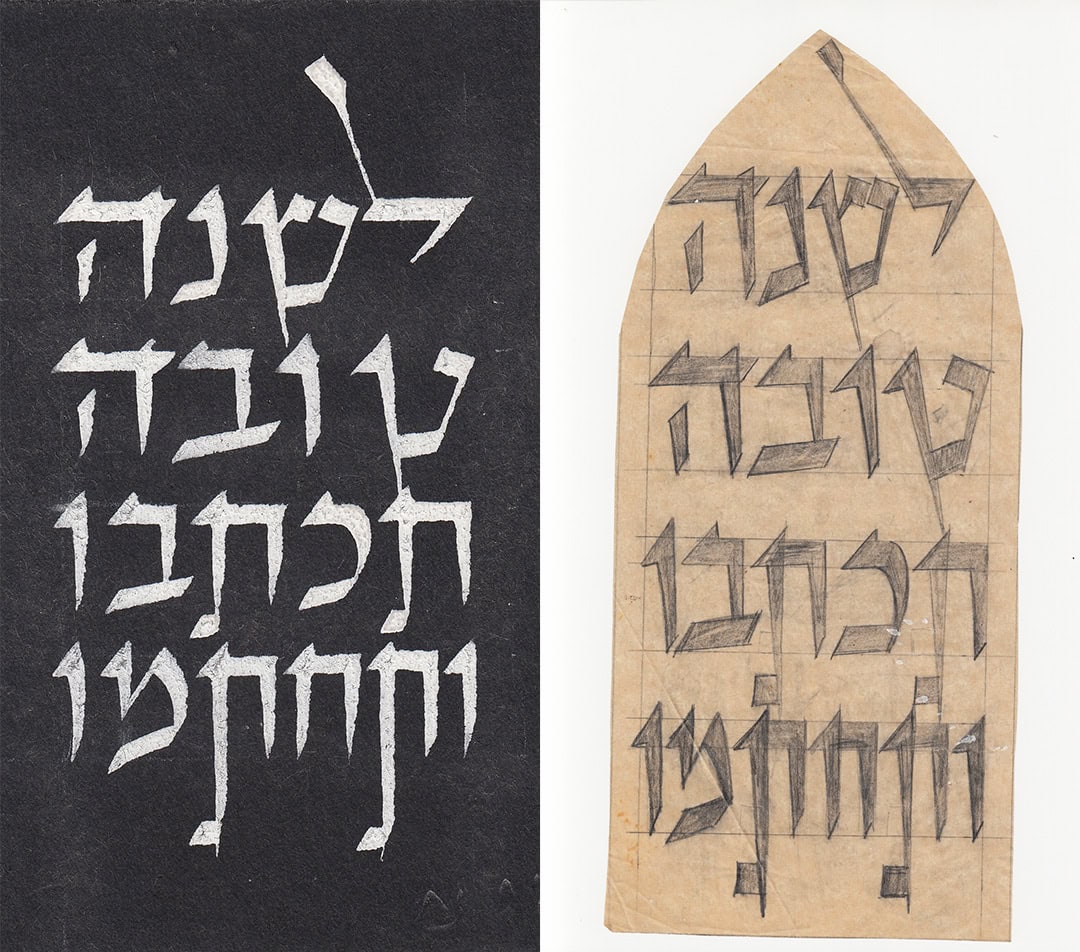 לשנה
טובה
תכתבו
ותחתמו
לשנה
טובה
תכתבו
ותחתמו